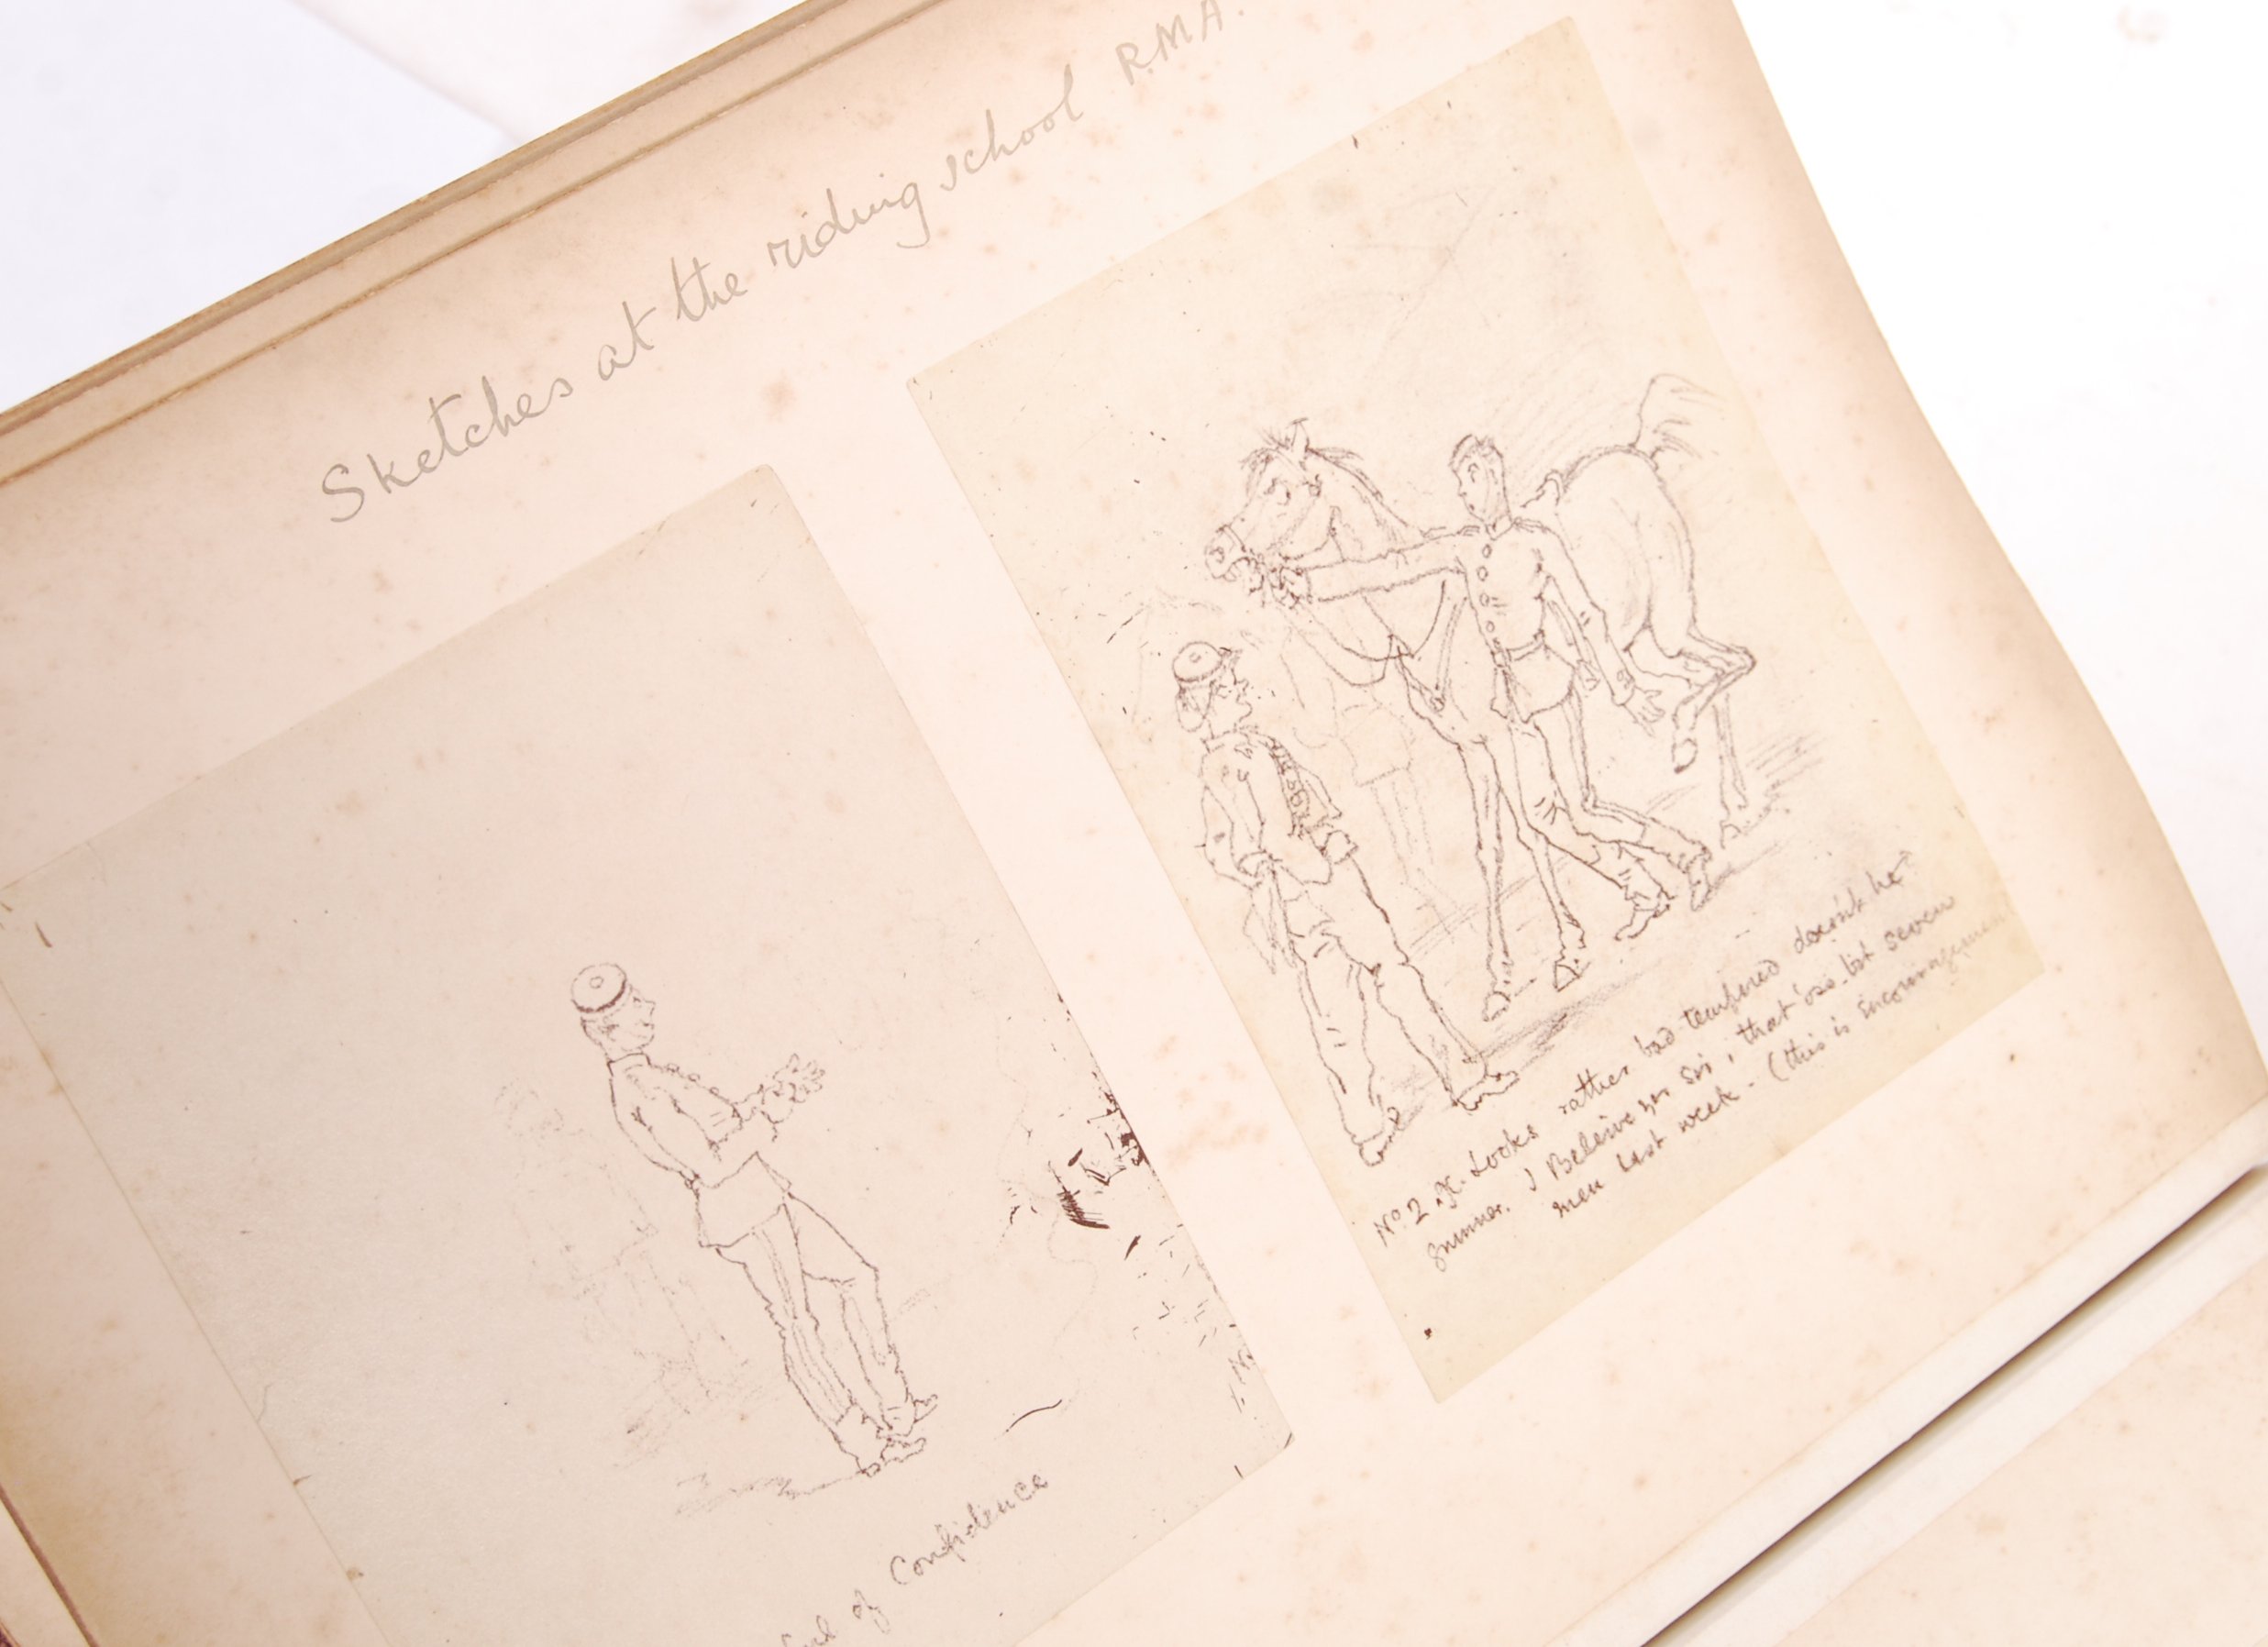 Sketches at the riding school R.M.A.
of Confidence
No. 2. X. Looks rather bad tempered doesn't he?
Gunner. I Beleive yer sir, that 'oss bit seven
men last week - (this is encouragement